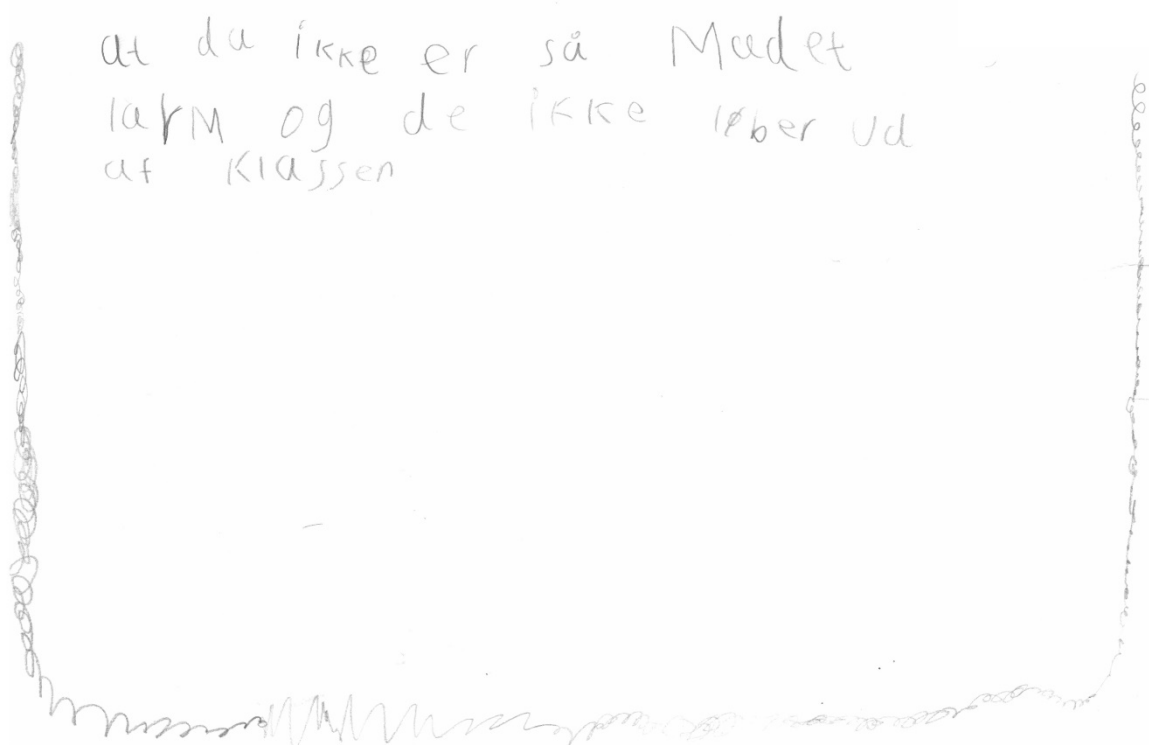 at da ikke er så Madet
larM og de ikke løber ud
af Klassen